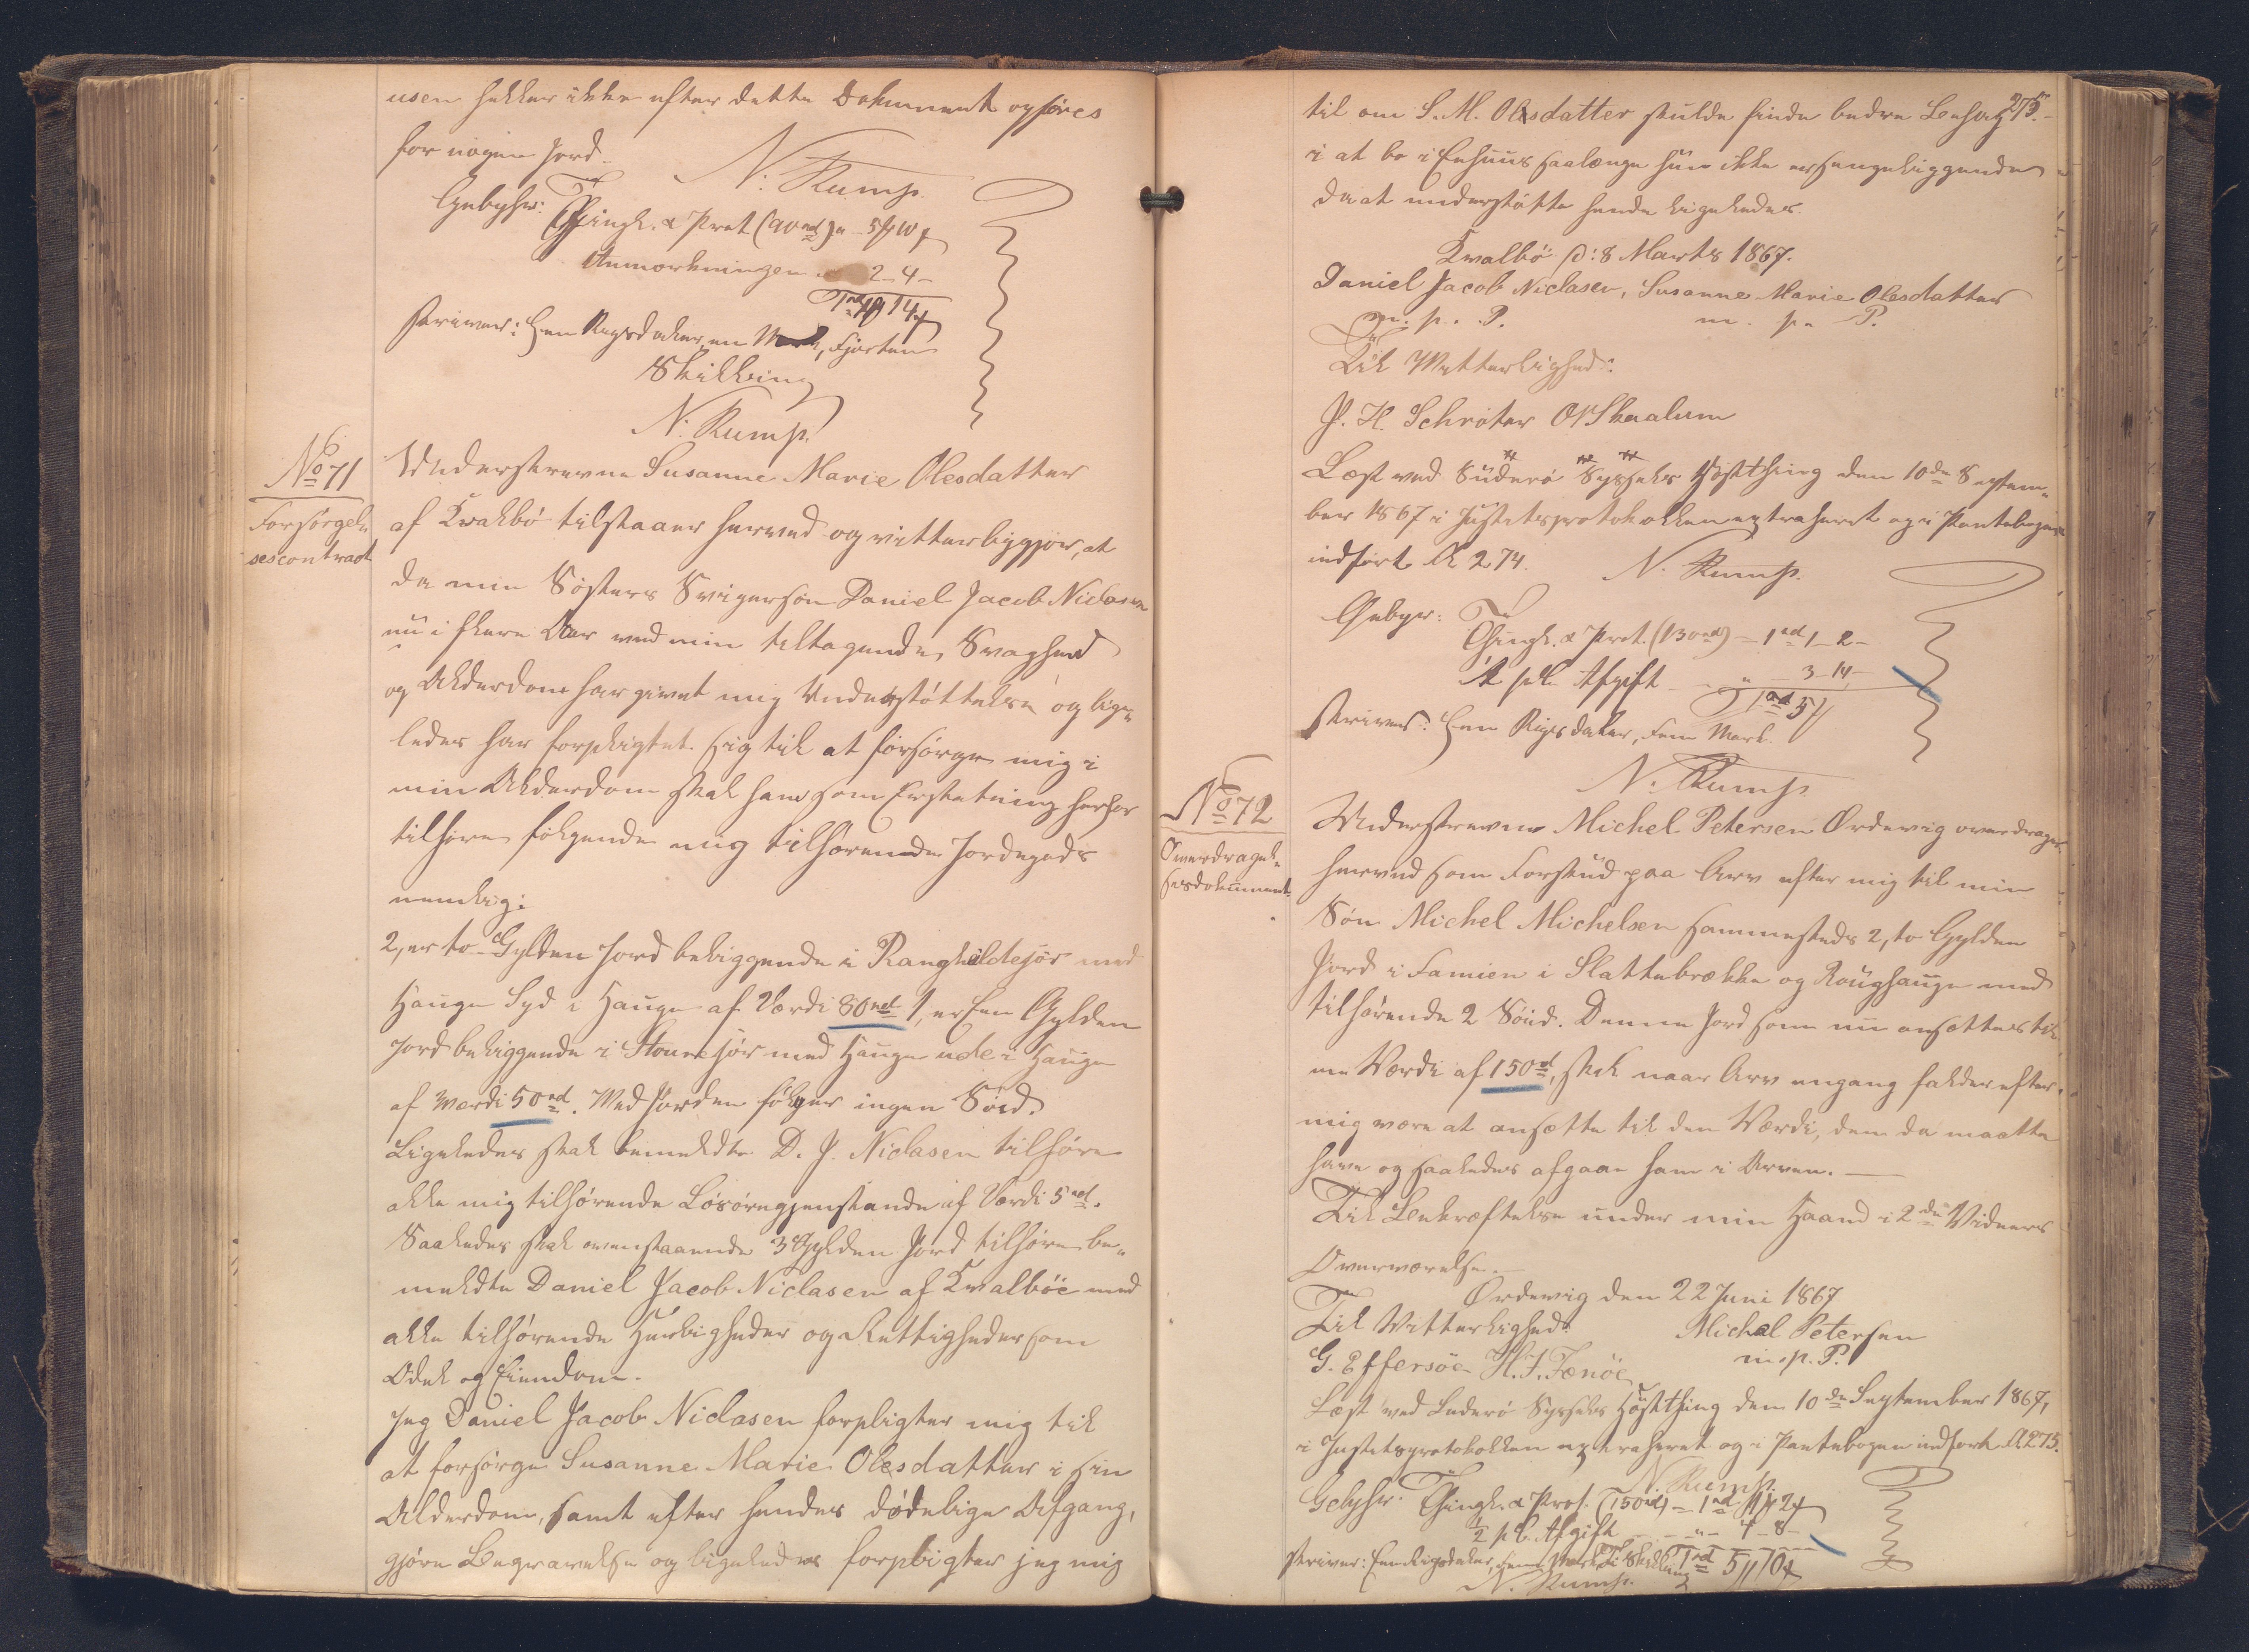 usen heller ikke efter dette Dokument opføres
for nogen Jord.
N. Rump.
Gebyhr: Thingl. & Prot (90 rd) „ - 5 ß 10
Anmærkningen „ 2 - 4 -
1 rd 1 14
skriver: Een Rigsdaler, en Mark, fjorten
Skilling
N. Rump.
No 71
Forsørgel-
sescontract
Understrevne Susanne Marie Olesdatter
af Qvalbø tilstaaer herved og vitterliggjør, at
da min Søsters Svigersøn Daniel Jacob Niclasen
nu i flere Aar ved min tiltagende Svaghed
og Alderdom har givet mig Understøttelse og lige-
ledes har forpligtet sig til at forsørge mig i
min Alderdom skal ham som Erstatning herfor
tilhøre følgende mig tilhørende Jordegods
nemlig:
2, er to Gylden Jord beliggende i Ranghildejør med
Hauge Syd i Hauge af Værdi 80 rd 1, er Een Gylden
Jord beliggende i Stourejør med Hauge ude i Hauge
af Værdi 50 rd. Med Jorden følger ingen Söid.
Ligeledes skal bemeldte D. J. Niclasen tilhøre
alle mig tilhørende Løsøregjenstande af Værdi 5 rd.
Saaledes skal ovenstaaende 3 Gylden Jord tilhøre be-
meldte Daniel Jacob Niclasen af Qvalböe med
alle tilhørende Herligheder og Rettigheder som
Odel og Eiendom.
Jeg Daniel Jacob Niclasen forpligter mig til
at forsørge Susanne Marie Olesdatter i sin
Alderdom, samt efter hendes dødelige Afgang,
gjøre Begravelse og ligeledes forpligter jeg mig
275.
til om S. M. Olesdatter skulde finde bedre Behag
i at bo i Eenhuus saalænge hun ikke er sengeliggende
da at understøtte hende ligeledes.
Qvalbö d: 8 Marts 1867.
Daniel Jacob Niclasen, Susanne Marie Olesdatter
m. p. P. m. p. P.
Til Vitterlighed:
J. H. Schröter O Skaalum
Læst ved Suderö Syssels Høstthing den 10de Septem-
ber 1867 i Justitsprotokollen extraheret og i Pantebogen
indført A 274.
N. Rump.
Gebyr: Thingl. & Prot. (130 rd) - 1 rd 1 - 2 -
½ pC. Afgift - „ - 3 - 14 -
1 rd 5
skriver: Een Rigsdaler, fem Mark.
N. Rump
No 72
Overdragel-
sesdokument.
Understrevne Michel Petersen Ordevig overdrager
herved som Forskud paa Arv efter mig til min
Søn Michel Michelsen sammesteds 2, to Gylden
Jord i Famien i Slattebrække og Roughauge med
tilhørende 2 Söid. Denne Jord som nu ansættes til
en Værdi af 150 rd, skal naar Arv engang falder efter
mig være at ansætte til den Værdi, den da maatte
have og saaledes afgaae ham i Arven.
Til Bekræftelse under min Haand i 2de Vidners
Overværelse.
Ordevig den 22 Juni 1867
Til Vitterlighed: Michal Petersen
G. Effersöe H. J. Fænöe m. p. P.
Læst ved Suderö Syssels Høstthing den 10de September 1867,
i Justitsprotokollen extraheret og i Pantebogen indført A 275.
N. Rump.
Gebyhr. Thingl. & Prot. (150 rd) - 1 rd 1 2
½ pC. Afgift - - „ - 4 - 8 -
skriver: Een Rigsdaler, fem Mark Ti Skilling 1 rd 5 10
N. Rump.